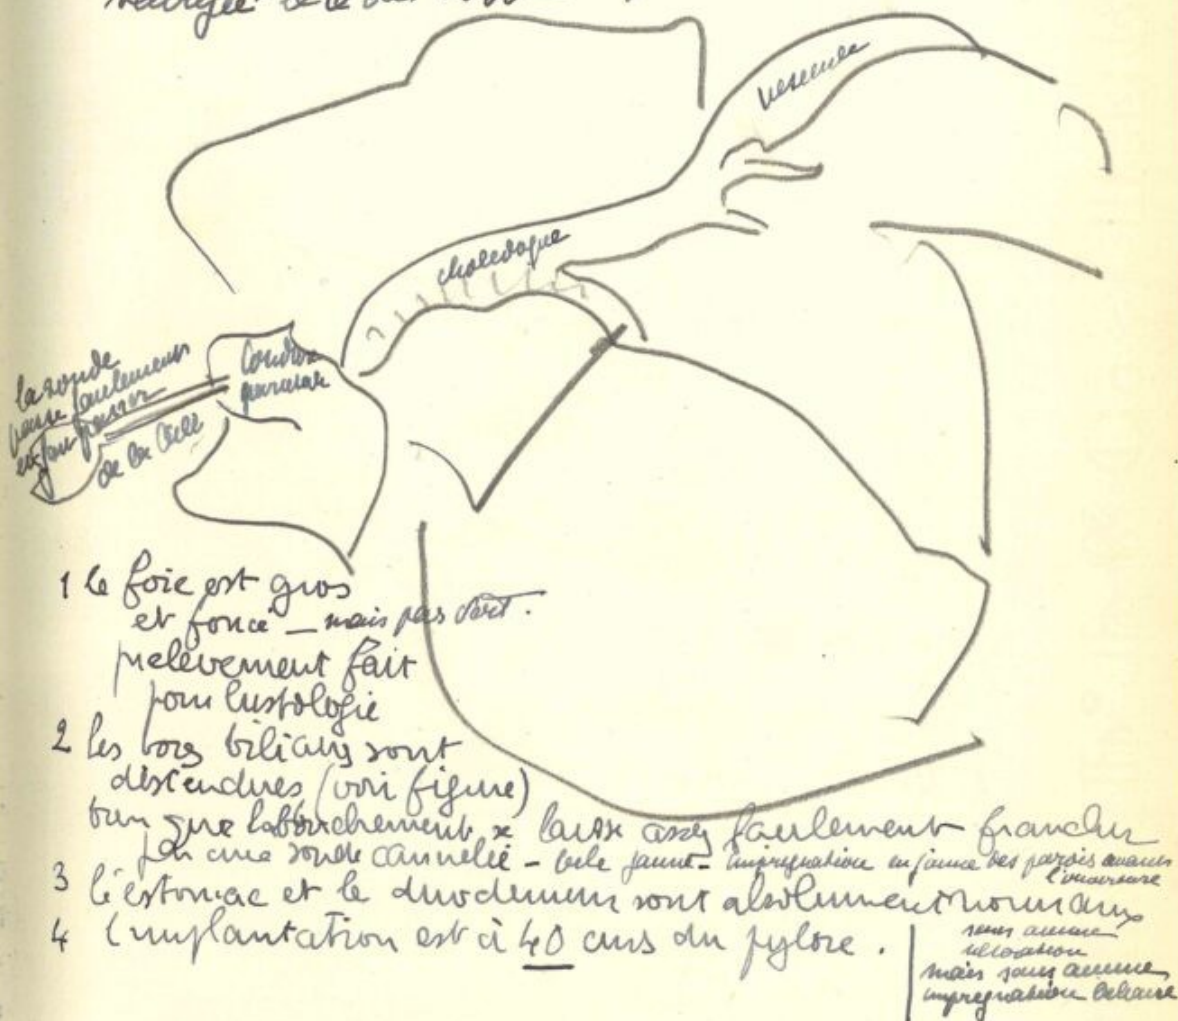 vesicule
choledoque
la sonde
passe facilement
en fait passer
de la bile
1 le foie est gros
et foncé _ mais pas vert.
prelevement fait
pour histologie
2 les voies biliaires sont
distendues (voir figure)
bien que l'abouchement x laisse assez facilement franchir
par une sonde cannelée - bile jaune - impregnation en jaune des parois
3 l'estomac et le duodenum sont absolument normaux
sans aucune
ulceration
mais sans aucune
impregnation biliaire
4 l'implantation est à 40 cms du pylore.